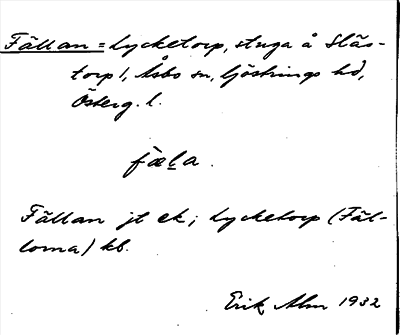 Fällan = Lycketorp, stuga å Släs-
torp 1, Åsbo sn, Göstrings hd,
Österg. l.
fäla.
Fällan jt ek; Lycketorp (Fäl-
lorna) kb.
Erik Alm 1932